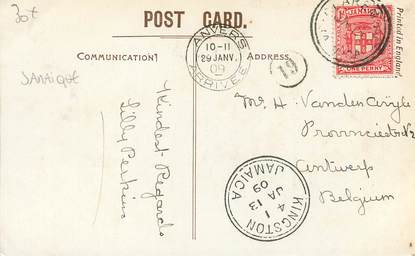 30€
JAMAIQUE
POST CARD.
COMMUNICATION
ADDRESS
Printed in England.
ANVERS
10-11
29 JANV.
09
ARRIVÉE
19
JAMAICA
ONE PENNY
Kindest Regards
Lilly Perkins
Mr H.
Antwerp
Belgium
KINGSTON
1
4
JA 13
09
JAMAICA